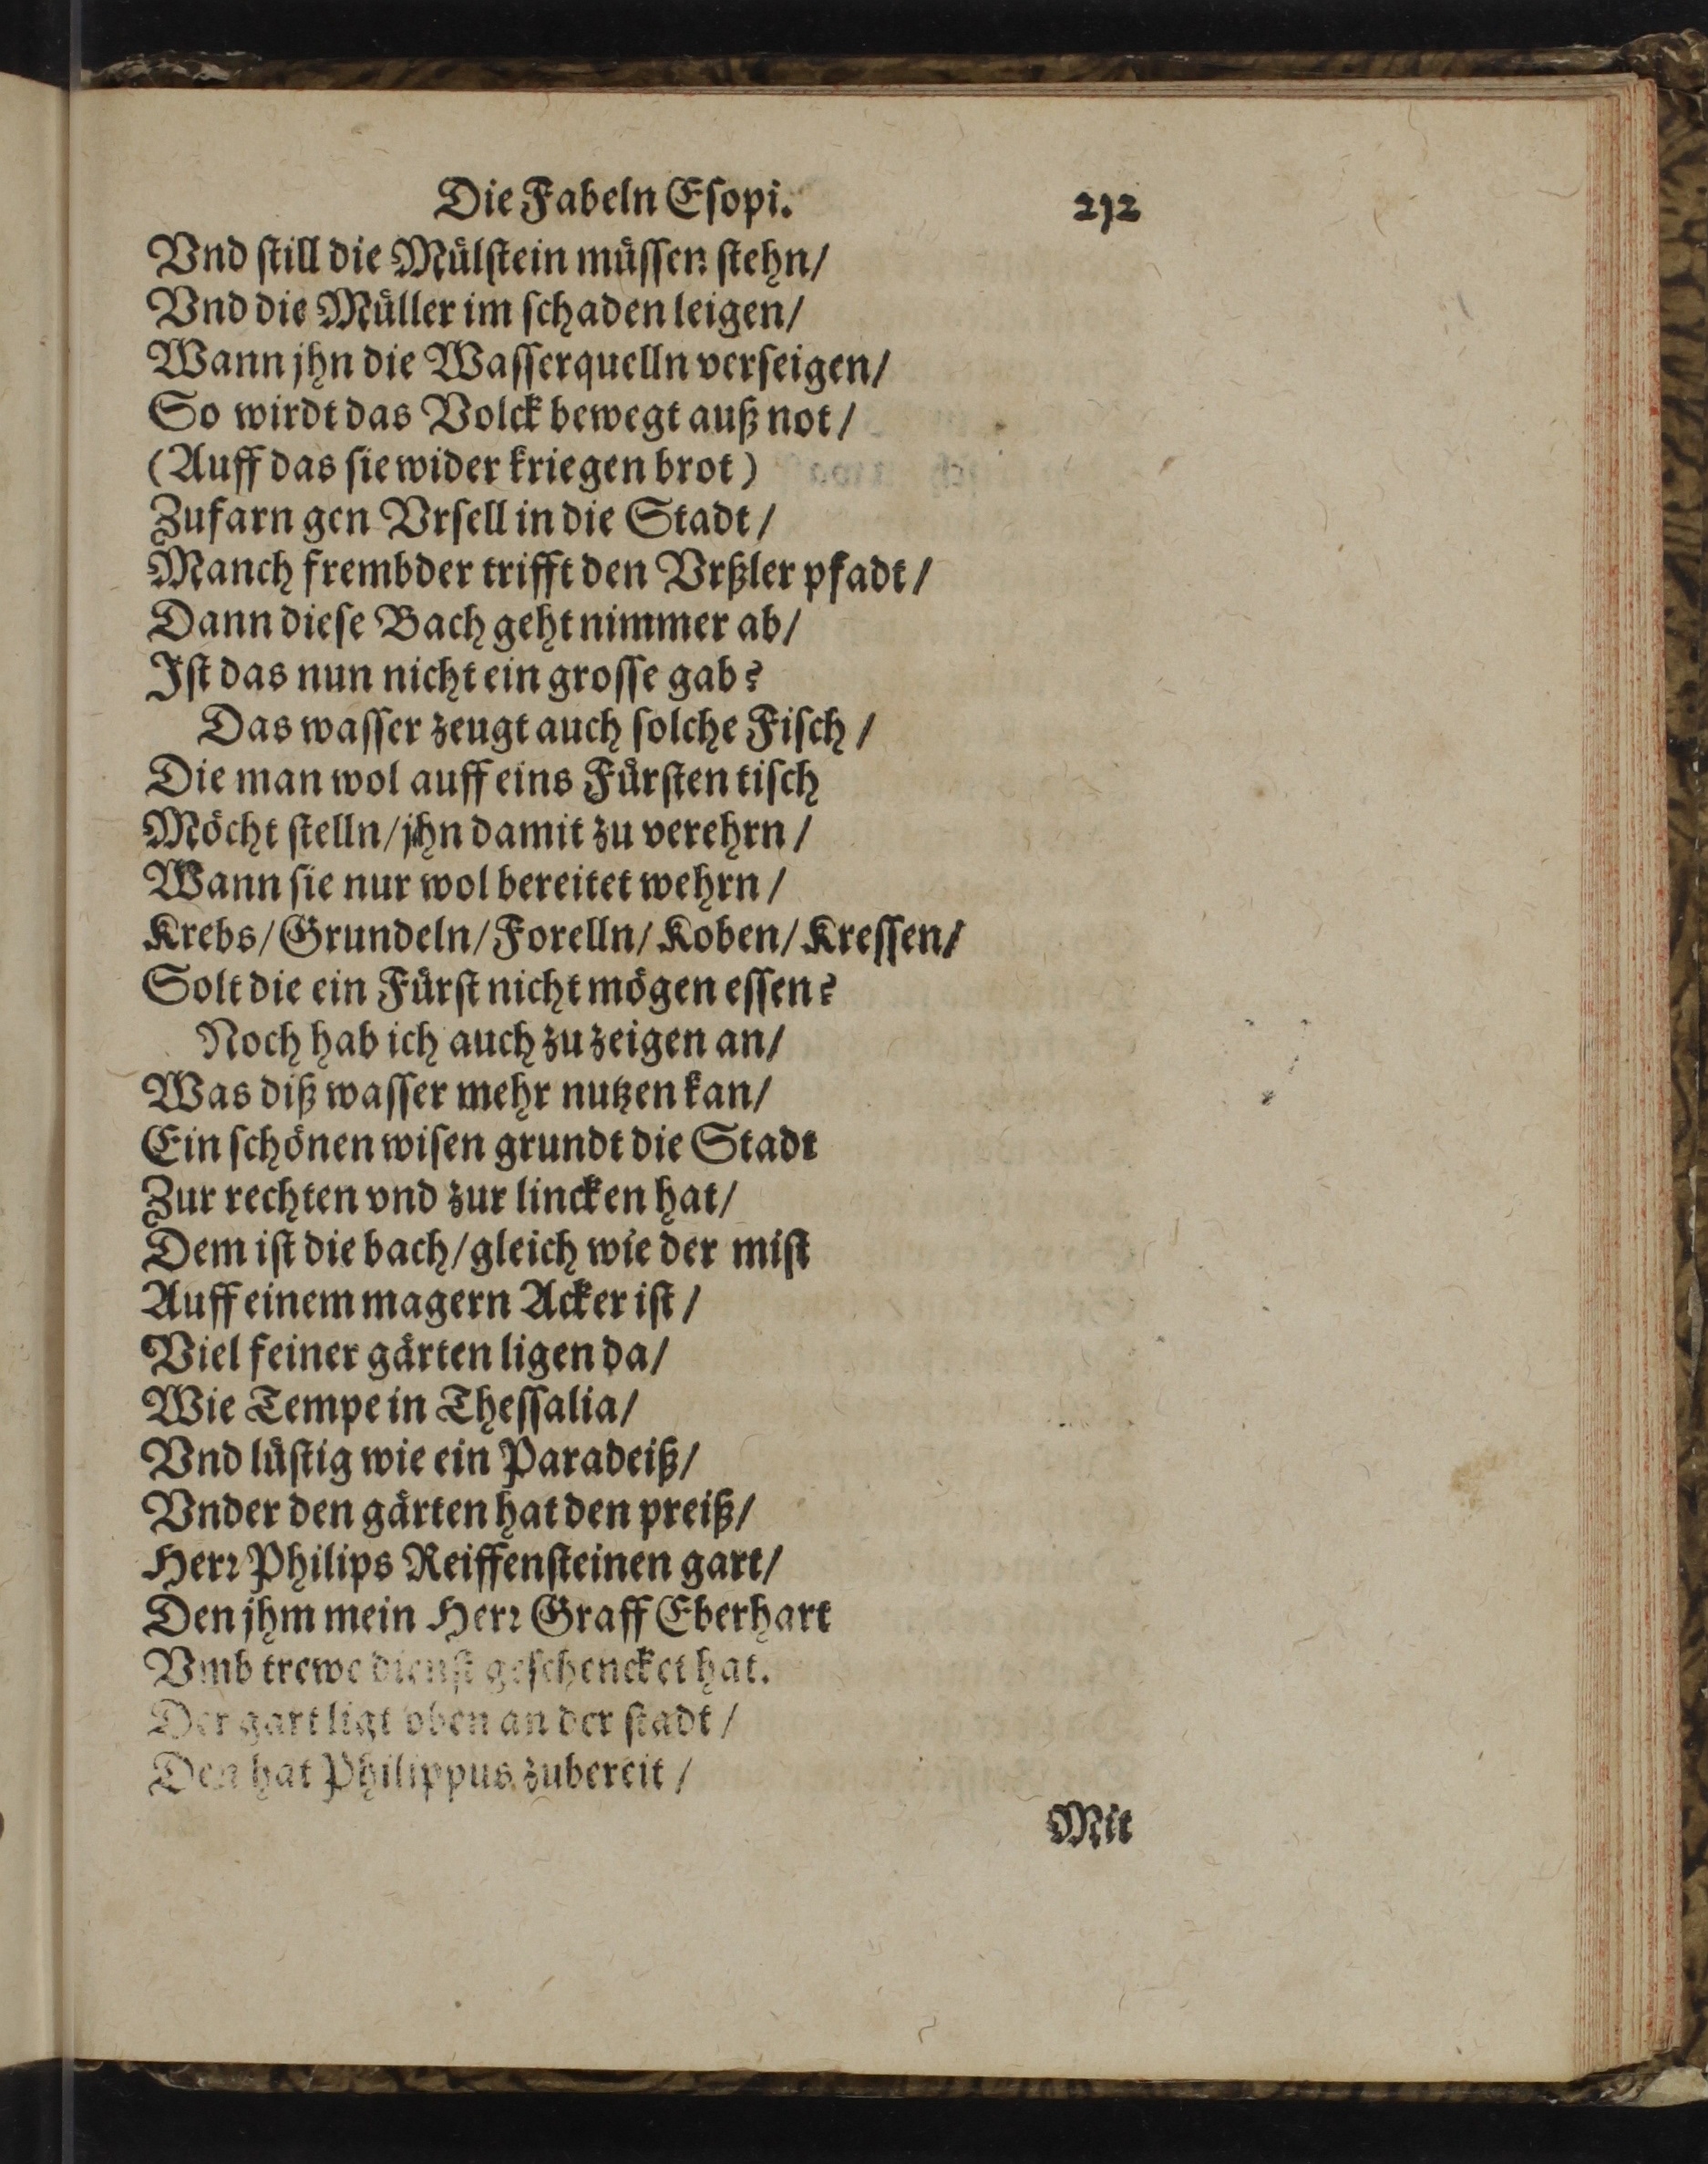 Die Fabeln Eſopi. 212
Vnd ſtill die Muͤlſtein muͤſſen ſtehn/
Vnd die Muͤller im ſchaden leigen/
Wann jhn die Waſſerquelln verſeigen/
So wirdt das Volck bewegt auß not/
(Auff das ſie wider kriegen brot)
Zufarn gen Vrſell in die Stadt/
Manch frembder trifft den Vrßler pfadt/
Dann dieſe Bach geht nimmer ab/
Iſt das nun nicht ein groſſe gab?
Das waſſer zeugt auch ſolche Fiſch/
Die man wol auff eins Fuͤrſten tiſch
Moͤcht ſtelln/jhn damit zu verehrn/
Wann ſie nur wol bereitet wehrn/
Krebs/Grundeln/Forelln/Koben/Kreſſen/
Solt die ein Fuͤrſt nicht moͤgen eſſen?
Noch hab ich auch zu zeigen an/
Was diß waſſer mehr nutzen kan/
Ein ſchoͤnen wiſen grundt die Stadt
Zur rechten vnd zur lincken hat/
Dem iſt die bach/gleich wie der miſt
Auff einem magern Acker iſt/
Viel feiner gaͤrten ligen da/
Wie Tempe in Theſſalia/
Vnd luͤſtig wie ein Paradeiß/
Vnder den gaͤrten hat den preiß/
Herꝛ Philips Reiffenſteinen gart/
Den jhm mein Herꝛ Graff Eberhart
Vmb trewe dienſt geſchencket hat.
Der gart ligt oben an der ſtadt/
Den hat Philippus zubereit/
Mit